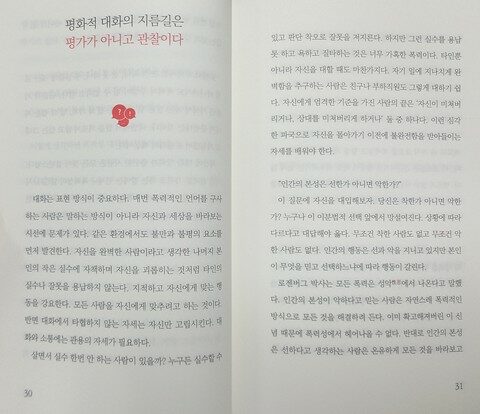 평화적 대화의 지름길은
평가가 아니고 관찰이다
대화는 표현 방식이 중요하다. 매번 폭력적인 언어를 구사
하는 사람은 말하는 방식이 아니라 자신과 세상을 바라보는
시선에 문제가 있다. 같은 환경에서도 불만과 불평의 요소를
먼저 발견한다. 자신을 완벽한 사람이라고 생각한 나머지 본
인의 작은 실수에 자책하며 자신을 괴롭히는 것처럼 타인의
실수나 잘못을 용납하지 않는다. 지적하고 자신에게 맞는 행
동을 강요한다. 모든 사람을 자신에게 맞추려고 하는 것이다.
반면 대화에서 타협하지 않는 자세는 자신만 고립시킨다. 대
화와 소통에는 관용의 자세가 필요하다.
살면서 실수 한번 안 하는 사람이 있을까? 누구든 실수할 수
30
있고 판단 착오로 잘못을 저지른다. 하지만 그런 실수를 용납
못 하고 욕하고 질타하는 것은 너무 가혹한 폭력이다. 타인뿐
아니라 자신을 대할 때도 마찬가지다. 자기 일에 지나치게 완
벽함을 추구하는 사람은 친구나 부하직원도 그렇게 대하기 쉽
다. 자신에게 엄격한 기준을 가진 사람의 끝은 '자신이 미쳐버
리거나, 상대를 미쳐버리게 하거나' 둘 중 하나다. 이런 심각
한 파국으로 자신을 몰아가기 이전에 불완전함을 받아들이는
자세를 배워야 한다.
"인간의 본성은 선한가 아니면 악한가?"
이 질문에 자신을 대입해보자. 당신은 착한가 아니면 악한
가? 누구나 이 이분법적 선택 앞에서 망설여진다. 상황에 따라
다르다고 대답해야 옳다. 무조건 착한 사람도 없고 무조건 악
한 사람도 없다. 인간의 행동은 선과 악을 지니고 있지만 본인
이 무엇을 믿고 선택하느냐에 따라 행동이 갈린다.
로젠버그 박사는 모든 폭력은 성악에서 나온다고 말했
다. 인간의 본성이 악하다고 믿는 사람은 자연스레 폭력적인
방식으로 모든 것을 해결하려 든다. 이미 확고해져버린 이 신
념 때문에 폭력성에서 헤어나올 수 없다. 반대로 인간의 본성
은 선하다고 생각하는 사람은 온유하게 모든 것을 바라보고
31